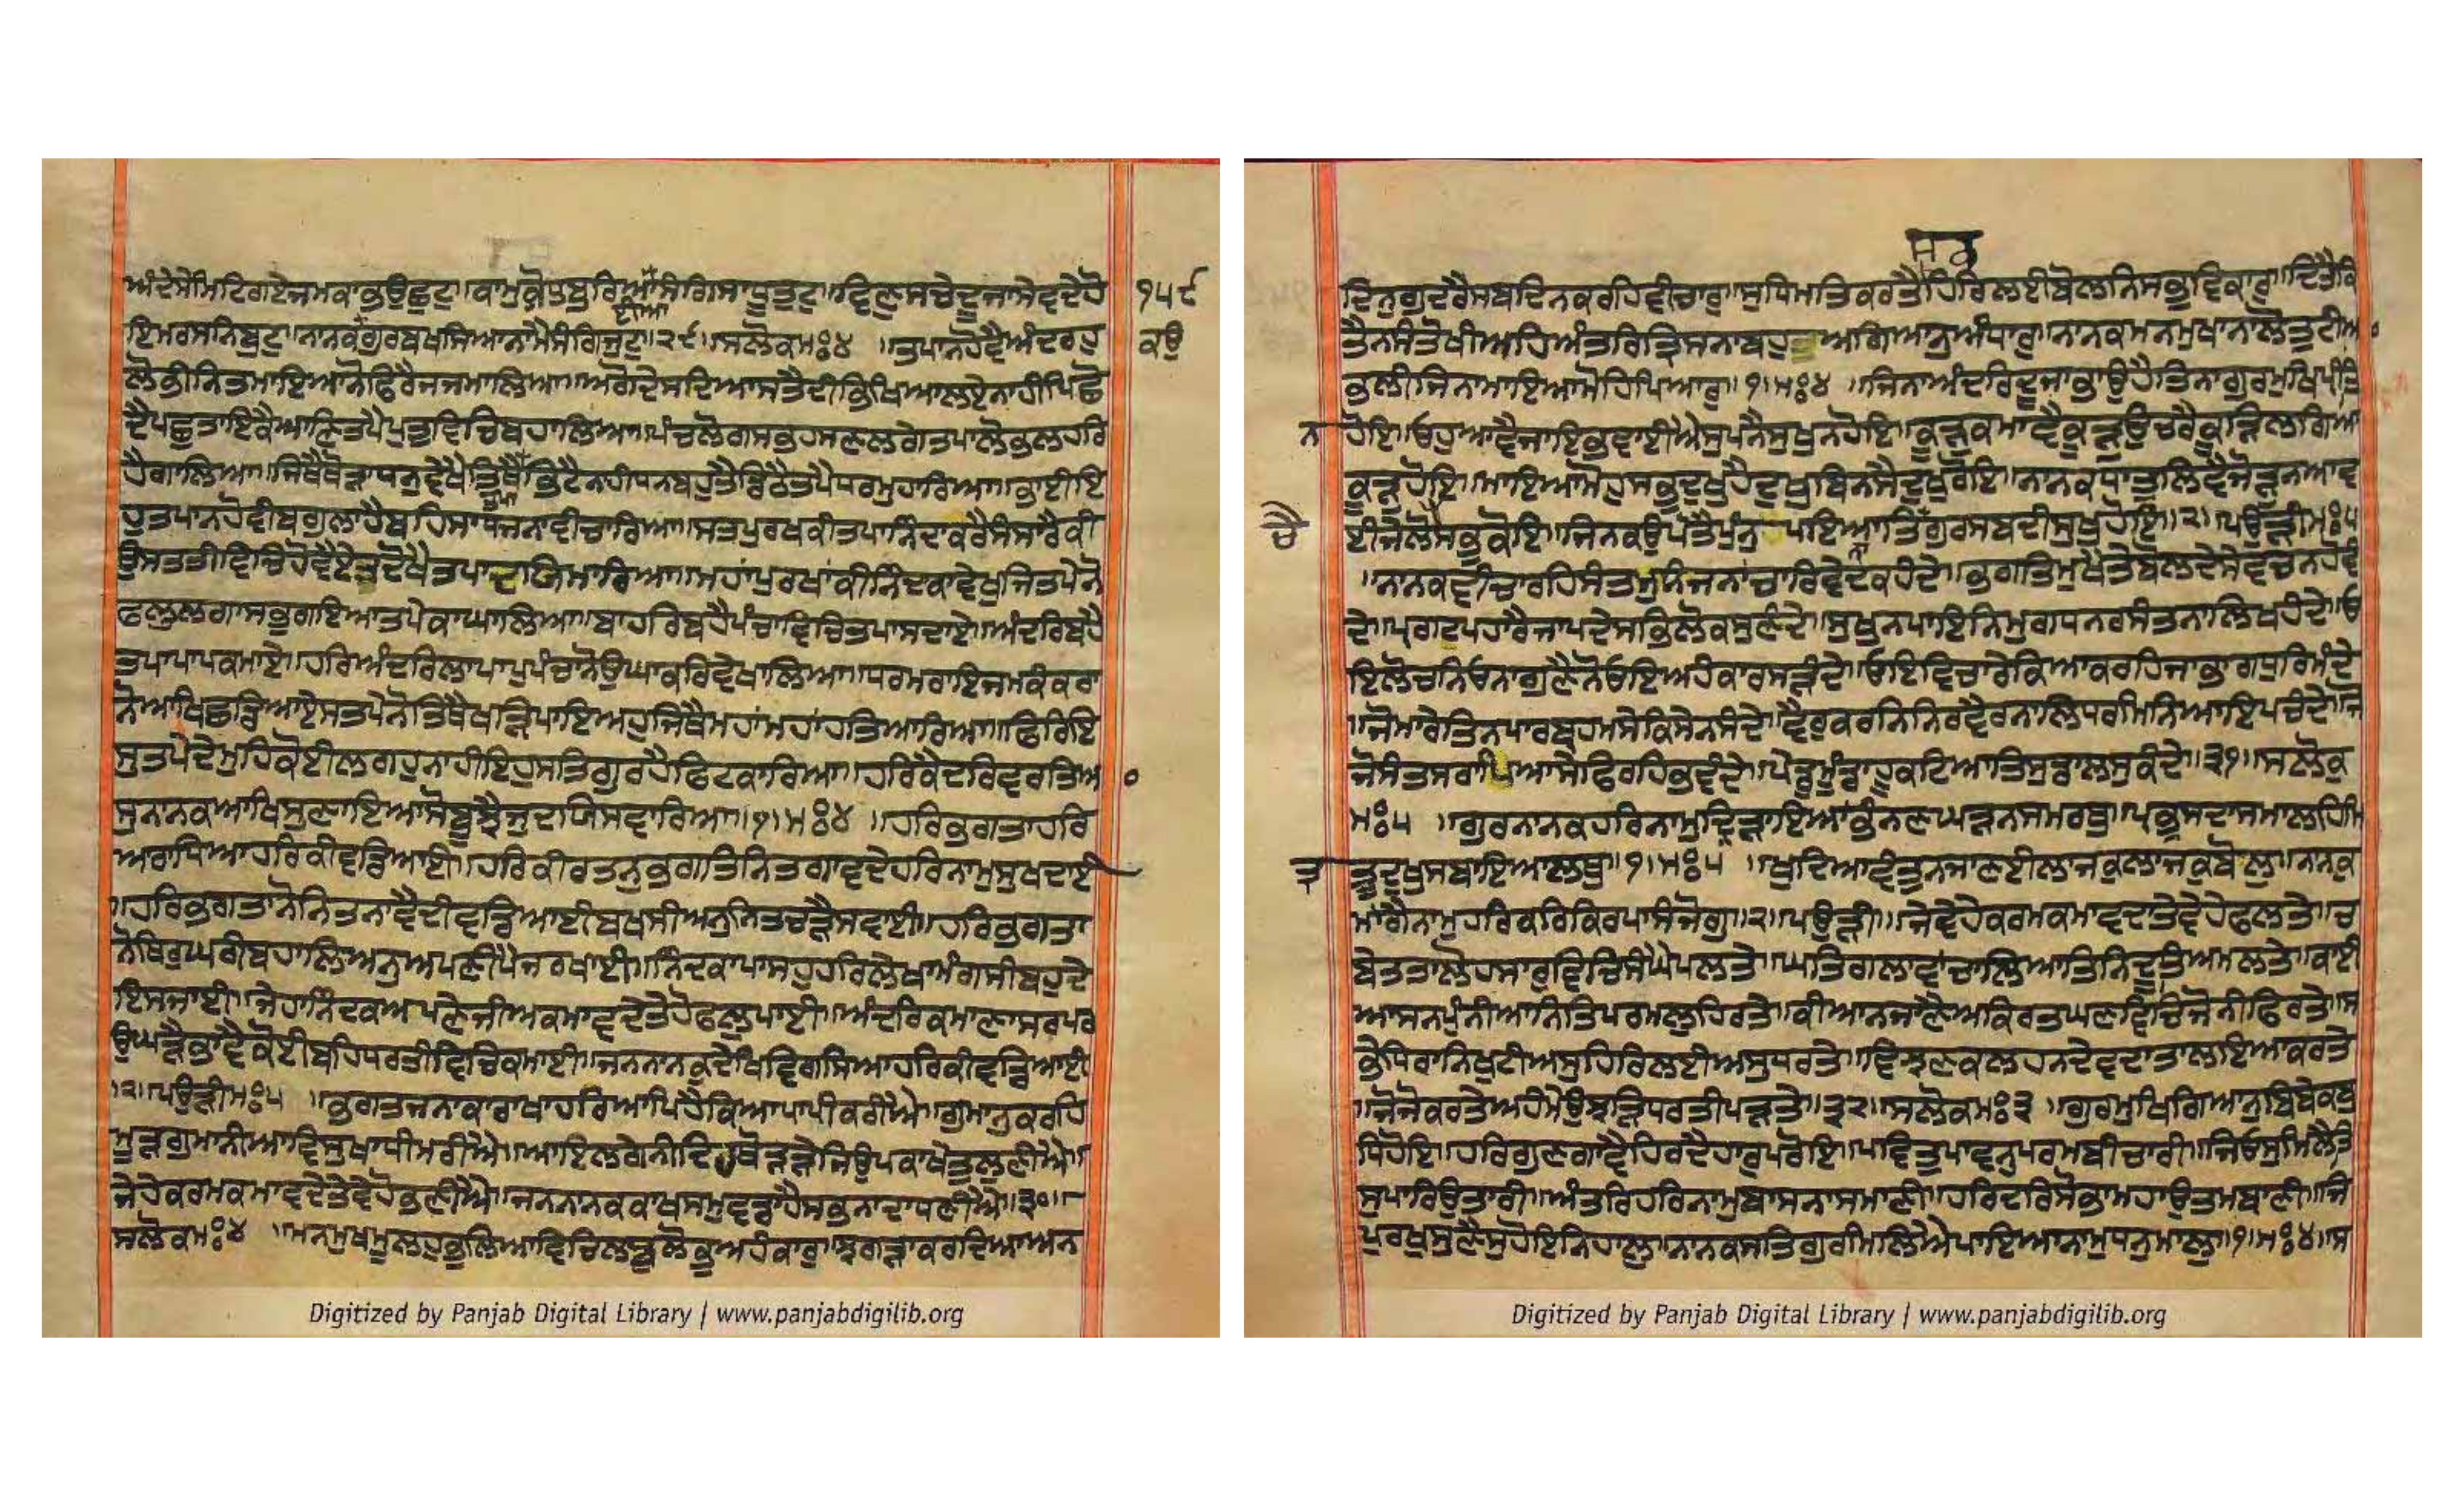 ਅੰਦੇਸੇਮਿਟਿਗਏਜਮਕਾਭਉਛੁਟਾ॥ਕਾਮੁਕ੍ਰੋਧੁਬੁਰਿਆਈਸੰਗਿਸਾਧੂਤੁਟਾ॥ਵਿਣੁਸਚੇਦੂਜਾਸੇਵਦੇਹੋ ੧੫੯
ਇਮਰਸਨਿਬੁਟਾ॥ਨਾਨਕਕਉਗੁਰਬਖਸਿਆਨਾਮੈਸੰਗਿਜੁਟਾ॥੨੯॥ਸਲੋਕਮਃ੪ ॥ਤਪਾਨਹੋਵੈਅੰਦਰਹੁ ਕਉ
ਲੋਭੀਨਿਤਮਾਇਆਨੋਫਿਰੈਜਜਮਾਲਿਆ॥ਅਗੋਦੇਸਦਿਆਸਤੈਦੀਭਿਖਿਆਲਏਨਾਹੀਪਿਛੋ
ਦੇਪਛੁਤਾਇਕੈਆਣਿਤਪੈਪੁਤੁਵਿਚਿਬਹਾਲਿਆ॥ਪੰਚਲੋਗਸਭਹਸਣਲਗੇਤਪਾਲੋਭਲਹਰਿ
ਹੈਗਾਲਿਆ॥ਜਿਥੈਥੋੜਾਧਨੁਵੇਖੈਤਿਥੈਤਪਾਭਿਟੈਨਹੀਧਨਬਹੁਤੈਡਿਠੈਤਪੈਧਰਮੁਹਾਰਿਆ॥ਭਾਈਏ
ਹੁਤਪਾਨਹੋਵੀਬਗੁਲਾਹੈਬਹਿਸਾਧਜਨਾਵੀਚਾਰਿਆ॥ਸਤਪੁਰਖਕੀਤਪਾਨਿੰਦਾਕਰੈਸੰਸਾਰੈਕੀ
ਉਸਤਤੀਵਿਚਿਹੋਵੈਏਤੁਦੋਖੈਤਪਾਦਾਯਿਮਾਰਿਆ॥ਮਹਾਪੁਰਖਾਂਕੀਨਿੰਦਕਾਵੇਖੁਜਿਤਪੇਨੋ
ਫਲੁਲਗਾਸਭੁਗਇਆਤਪੇਕਾਘਾਲਿਆ॥ਬਾਹਰਿਬਹੈਪੰਚਾਵਿਚਿਤਪਾਸਦਾਏ॥ਅੰਦਰਿਬਹੈ
ਤਪਾਪਾਪਕਮਾਏ॥ਹਰਿਅੰਦਰਿਲਾਪਾਪੁਪੰਚਾਨੋਉਘਾਕਰਿਵੇਖਾਲਿਆ॥ਧਰਮਰਾਇਜਮਕੰਕਰਾ
ਨੋਆਖਿਛਡਿਆਏਸਤਪੇਨੋਤਿਥੈਖੜਿਪਾਇਅਹੁਜਿਥੈਮਹਾਂਮਹਾਂਹਤਿਆਰਿਆ॥ਫਿਰਿਇ
ਸੁਤਪੇਦੇਮੁਹਿਕੋਈਲਗਹੁਨਾਹੀਇਹੁਸਤਿਗੁਰਹੈਫਿਟਕਾਰਿਆ॥ਹਰਿਕੈਦਰਿਵਰਤਿਅ ੦
ਸੁਨਾਨਕਆਖਿਸੁਣਾਇਆਸੋਬੂਝੈਜੁਦਯਿਸਵਾਰਿਆ॥੧॥ਮਃ੪ ॥ਹਰਿਭਗਤਾਹਰਿ
ਅਰਾਧਿਆਹਰਿਕੀਵਡਿਆਈ॥ਹਰਿਕੀਰਤਨੁਭਗਤਿਨਿਤਗਾਵਦੇਹਰਿਨਾਮੁਸੁਖਦਾਈ
॥ਹਰਿਭਗਤਾਨੋਨਿਤਨਾਵੈਦੀਵਡਿਆਈਬਖਸੀਅਨੁਨਿਤਚੜੈਸਵਾਈ॥ਹਰਿਭਗਤਾ
ਨੋਥਿਰੁਘਰੀਬਹਾਲਿਅਨੁਅਪਣੀਪੈਜਰਖਾਈ॥ਨਿੰਦਕਾਪਾਸਹੁਹਰਿਲੇਖਾਮੰਗਸੀਬਹੁਦੇ
ਇਸਜਾਈ॥ਜੇਹਾਨਿੰਦਕਅਪਣੇਜੀਅਕਮਾਵਦੇਤੇਹੋਫਲੁਪਾਈ॥ਅੰਦਰਿਕਮਾਣਾਸਰਪਰ
ਉਘੜੈਭਾਵੈਕੋਈਬਹਿਧਰਤੀਵਿਚਿਕਮਾਈ॥ਜਨਨਾਨਕੁਦੇਖਿਵਿਗਸਿਆਹਰਿਕੀਵਡਿਆਈ
॥੨॥ਪਉੜੀਮਃ੫ ॥ਭਗਤਜਨਾਕਾਰਾਖਾਹਰਿਆਪਿਹੈਕਿਆਪਾਪੀਕਰੀਐ॥ਗੁਮਾਨੁਕਰਹਿ
ਮੂੜਗੁਮਾਨੀਆਵਿਸੁਖਾਧੀਮਰੀਐ॥ਆਇਲਗੇਨੀਦਿਹਥੋੜੜੇਜਿਉਪਕਾਖੇਤੁਲੁਣੀਐ॥
ਜੇਹੇਕਰਮਕਮਾਵਦੇਤੇਵੇਹੋਭਣੀਐ॥ਜਨਨਾਨਕਕਾਖਸਮੁਵਡਾਹੈਸਭਨਾਦਾਧਣੀਐ॥੩੦॥
ਸਲੋਕਮਃ੪ ॥ਮਨਮੁਖਮੂਲਹੁਭੁਲਿਆਵਿਚਿਲਬੁਲੋਭੁਅਹੰਕਾਰੁ॥ਝਗੜਾਕਰਦਿਆਅਨ
ਦਿਨੁਗੁਦਰੈਸਬਦਿਨਕਰਹਿਵੀਚਾਰੁ॥ਸੁਧਿਮਤਿਕਰਤੈਸਭਹਿਰਿਲਈਬੋਲਨਿਸਭੁਵਿਕਾਰੁ॥ਦਿਤੈਕਿ
ਤੈਨਸੰਤੋਖੀਅਹਿਅੰਤਰਿਤਿਸਨਾਬਹੁਤੁਅਗਿਆਨੁਅੰਧਾਰੁ॥ਨਾਨਕਮਨਮੁਖਾਨਾਲੋਤੁਟੀਅ ੦
ਭਲੀਜਿਨਾਮਾਇਆਮੋਹਿਪਿਆਰੁ॥੧॥ਮਃ੪ ॥ਜਿਨਾਅੰਦਰਿਦੂਜਾਭਾਉਹੈਤਿਨਾਗੁਰਮੁਖਿਪ੍ਰੀਤਿ
ਨ ਹੋਇ॥ਓਹੁਆਵੈਜਾਇਭਵਾਈਐਸੁਪਨੈਸੁਖੁਨਹੋਇ॥ਕੂੜੁਕਮਾਵੈਕੂੜੁਉਚਰੈਕੂੜਿਲਗਿਆ
ਕੂੜੁਹੋਇ॥ਮਾਇਆਮੋਹੁਸਭੁਦੁਖੁਹੈਦੁਖਬਿਨਸੈਦੁਖੁਰੋਇ॥ਨਾਨਕਧਾਤੁਲਿਵੈਜੋੜੁਨਆਵ
ਚੈ ਈਜੇਲੋਸਭੁਕੋਇ॥ਜਿਨਕਉਪੋਤੈਪੁੰਨੁਪਇਆਤਿਨਾਗੁਰਸਬਦੀਸੁਖੁਹੋਇ॥੨॥ਪਉੜੀਮਃ੫
॥ਨਾਨਕਵੀਚਾਰਹਿਸੰਤਮੁਨਿਜਨਾਂਚਾਰਿਵੇਦਕਹੰਦੇ॥ਭਗਤਿਮੁਖੈਤੇਬੋਲਦੇਸੇਵਚਨਹੋਵੰ
ਦੇ॥ਪਰਗਟਪਹਾਰੈਜਾਪਦੇਸਭਿਲੋਕਸੁਣੰਦੇ॥ਸੁਖੁਨਪਾਇਨਿਮੁਗਧਨਰਸੰਤਨਾਲਿਖਹੰਦੇ॥ਓ
ਇਲੋਚਨਿਓਨਾਗੁਣੈਨੋਓਇਅਹੰਕਾਰਸੜੰਦੇ॥ਓਇਵਿਚਾਰੇਕਿਆਕਰਹਿਜਾਭਾਗਧੁਰਿਮੰਦੇ
॥ਜੋਮਾਰੇਤਿਨਪਾਰਬ੍ਰਹਮਸੇਕਿਸੈਨਸੰਦੇ॥ਵੈਰੁਕਰਨਿਨਿਰਵੈਰਨਾਲਿਧਰਮਿਨਿਆਇਪਚੰਦੇ॥ਜੋ
ਜੋਸੰਤਸਰਾਪਿਆਸੇਫਿਰਹਿਭਵੰਦੇ॥ਪੇਡੁਮੁੰਢਾਹੂਕਟਿਆਤਿਸੁਡਾਲਸੁਕੰਦੇ॥੩੧॥ਸਲੋਕੁ
ਮਃ੫ ॥ਗੁਰਨਾਨਕਹਰਿਨਾਮੁਦ੍ਰਿੜਾਇਆਭੰਨਣਘੜਨਸਮਰਥੁ॥ਪ੍ਰਭੁਸਦਾਸਮਾਲਹਿਮਿ
ਤ੍ਰ ਤੂਦੁਖੁਸਬਾਇਆਲਥੁ॥੧॥ਮਃ੫ ॥ਖੁਦਿਆਵੰਤੁਨਜਾਣਈਲਾਜਕੁਲਾਜਕੁਬੋਲੁ॥ਨਾਨਕ
ਮਾਂਗੈਨਾਮੁਹਰਿਕਰਿਕਿਰਪਾਸੰਜੋਗੁ॥੨॥ਪਉੜੀ॥ਜੇਵੇਹੇਕਰਮਕਮਾਵਦਾਤੇਵੇਹੇਫਲਤੇ॥ਚ
ਬੇਤਤਾਲੋਹਸਾਰੁਵਿਚਿਸੰਘੈਪਲਤੇ॥ਘਤਿਗਲਾਵਾਂਚਾਲਿਆਤਿਨਿਦੂਤਿਅਮਲਤੇ॥ਕਾਈ
ਆਸਨਪੁੰਨੀਆਨਿਤਿਪਰਮਲੁਹਿਰਤੇ॥ਕੀਆਨਜਾਣੈਅਕਿਰਤਘਣਵਿਚਿਜੋਨੀਫਿਰਤੇ॥ਸ
ਭੇਧਿਰਾਨਿਖੁਟੀਅਸੁਹਿਰਿਲਈਅਸੁਧਰਤੇ॥ਵਿਝਣਕਲਹਨਦੇਵਦਾਤਾਂਲਇਆਕਰਤੇ
॥ਜੋਜੋਕਰਤੇਅਹੰਮੇਉਝੜਿਧਰਤੀਪੜਤੇ॥੩੨॥ਸਲੋਕਮਃ੩ ॥ਗੁਰਮੁਖਿਗਿਆਨੁਬਿਬੇਕਬੁ
ਧਿਹੋਇ॥ਹਰਿਗੁਣਗਾਵੈਹਿਰਦੈਹਾਰੁਪਰੋਇ॥ਪਵਿਤੁਪਾਵਨੁਪਰਮਬੀਚਾਰੀ॥ਜਿਓਸੁਮਿਲੈਤਿ
ਸੁਪਾਰਿਉਤਾਰੀ॥ਅੰਤਰਿਹਰਿਨਾਮੁਬਾਸਨਾਸਮਾਣੀ॥ਹਰਿਦਰਿਸੋਭਾਮਹਾਉਤਮਬਾਣੀ॥ਜਿ
ਪੁਰਖੁਸੁਣੈਸੁਹੋਇਨਿਹਾਲੁ॥ਨਾਨਕਸਤਿਗੁਰਮਿਲਿਐਪਾਇਆਨਾਮੁਧਨੁਮਾਲੁ॥੧॥ਮਃ੪॥ਸ
Digitized by Panjab Digital Library | www.panjabdigilib.org
Digitized by Panjab Digital Library | www.panjabdigilib.org